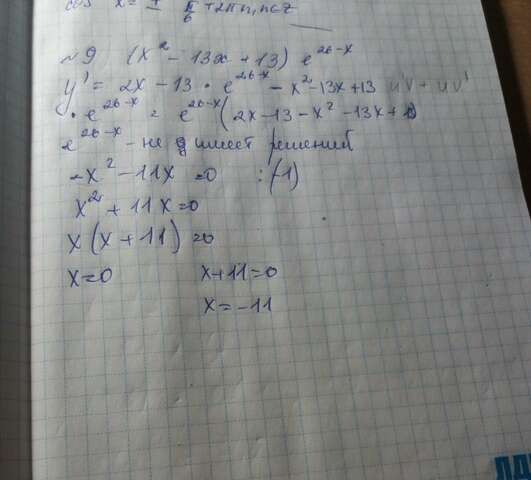 cos x = π/6 + 2πn, n∈Z
№9 (x² - 13x + 13) e^26-x
y' = 2x - 13 · e^26-x - x² - 13x + 13 u'v + uv'
· e^26-x = e^26-x (2x - 13 - x² - 13x + 13
e^26-x - не имеет решений
-x² - 11x = 0 :(-1)
x² + 11x = 0
x (x + 11) = 0
x = 0 x + 11 = 0
x = -11